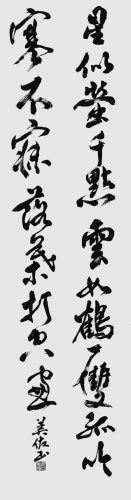 星似螢千點雲如鶴一雙孤吟
寒不寐落葉打空窗
美佐